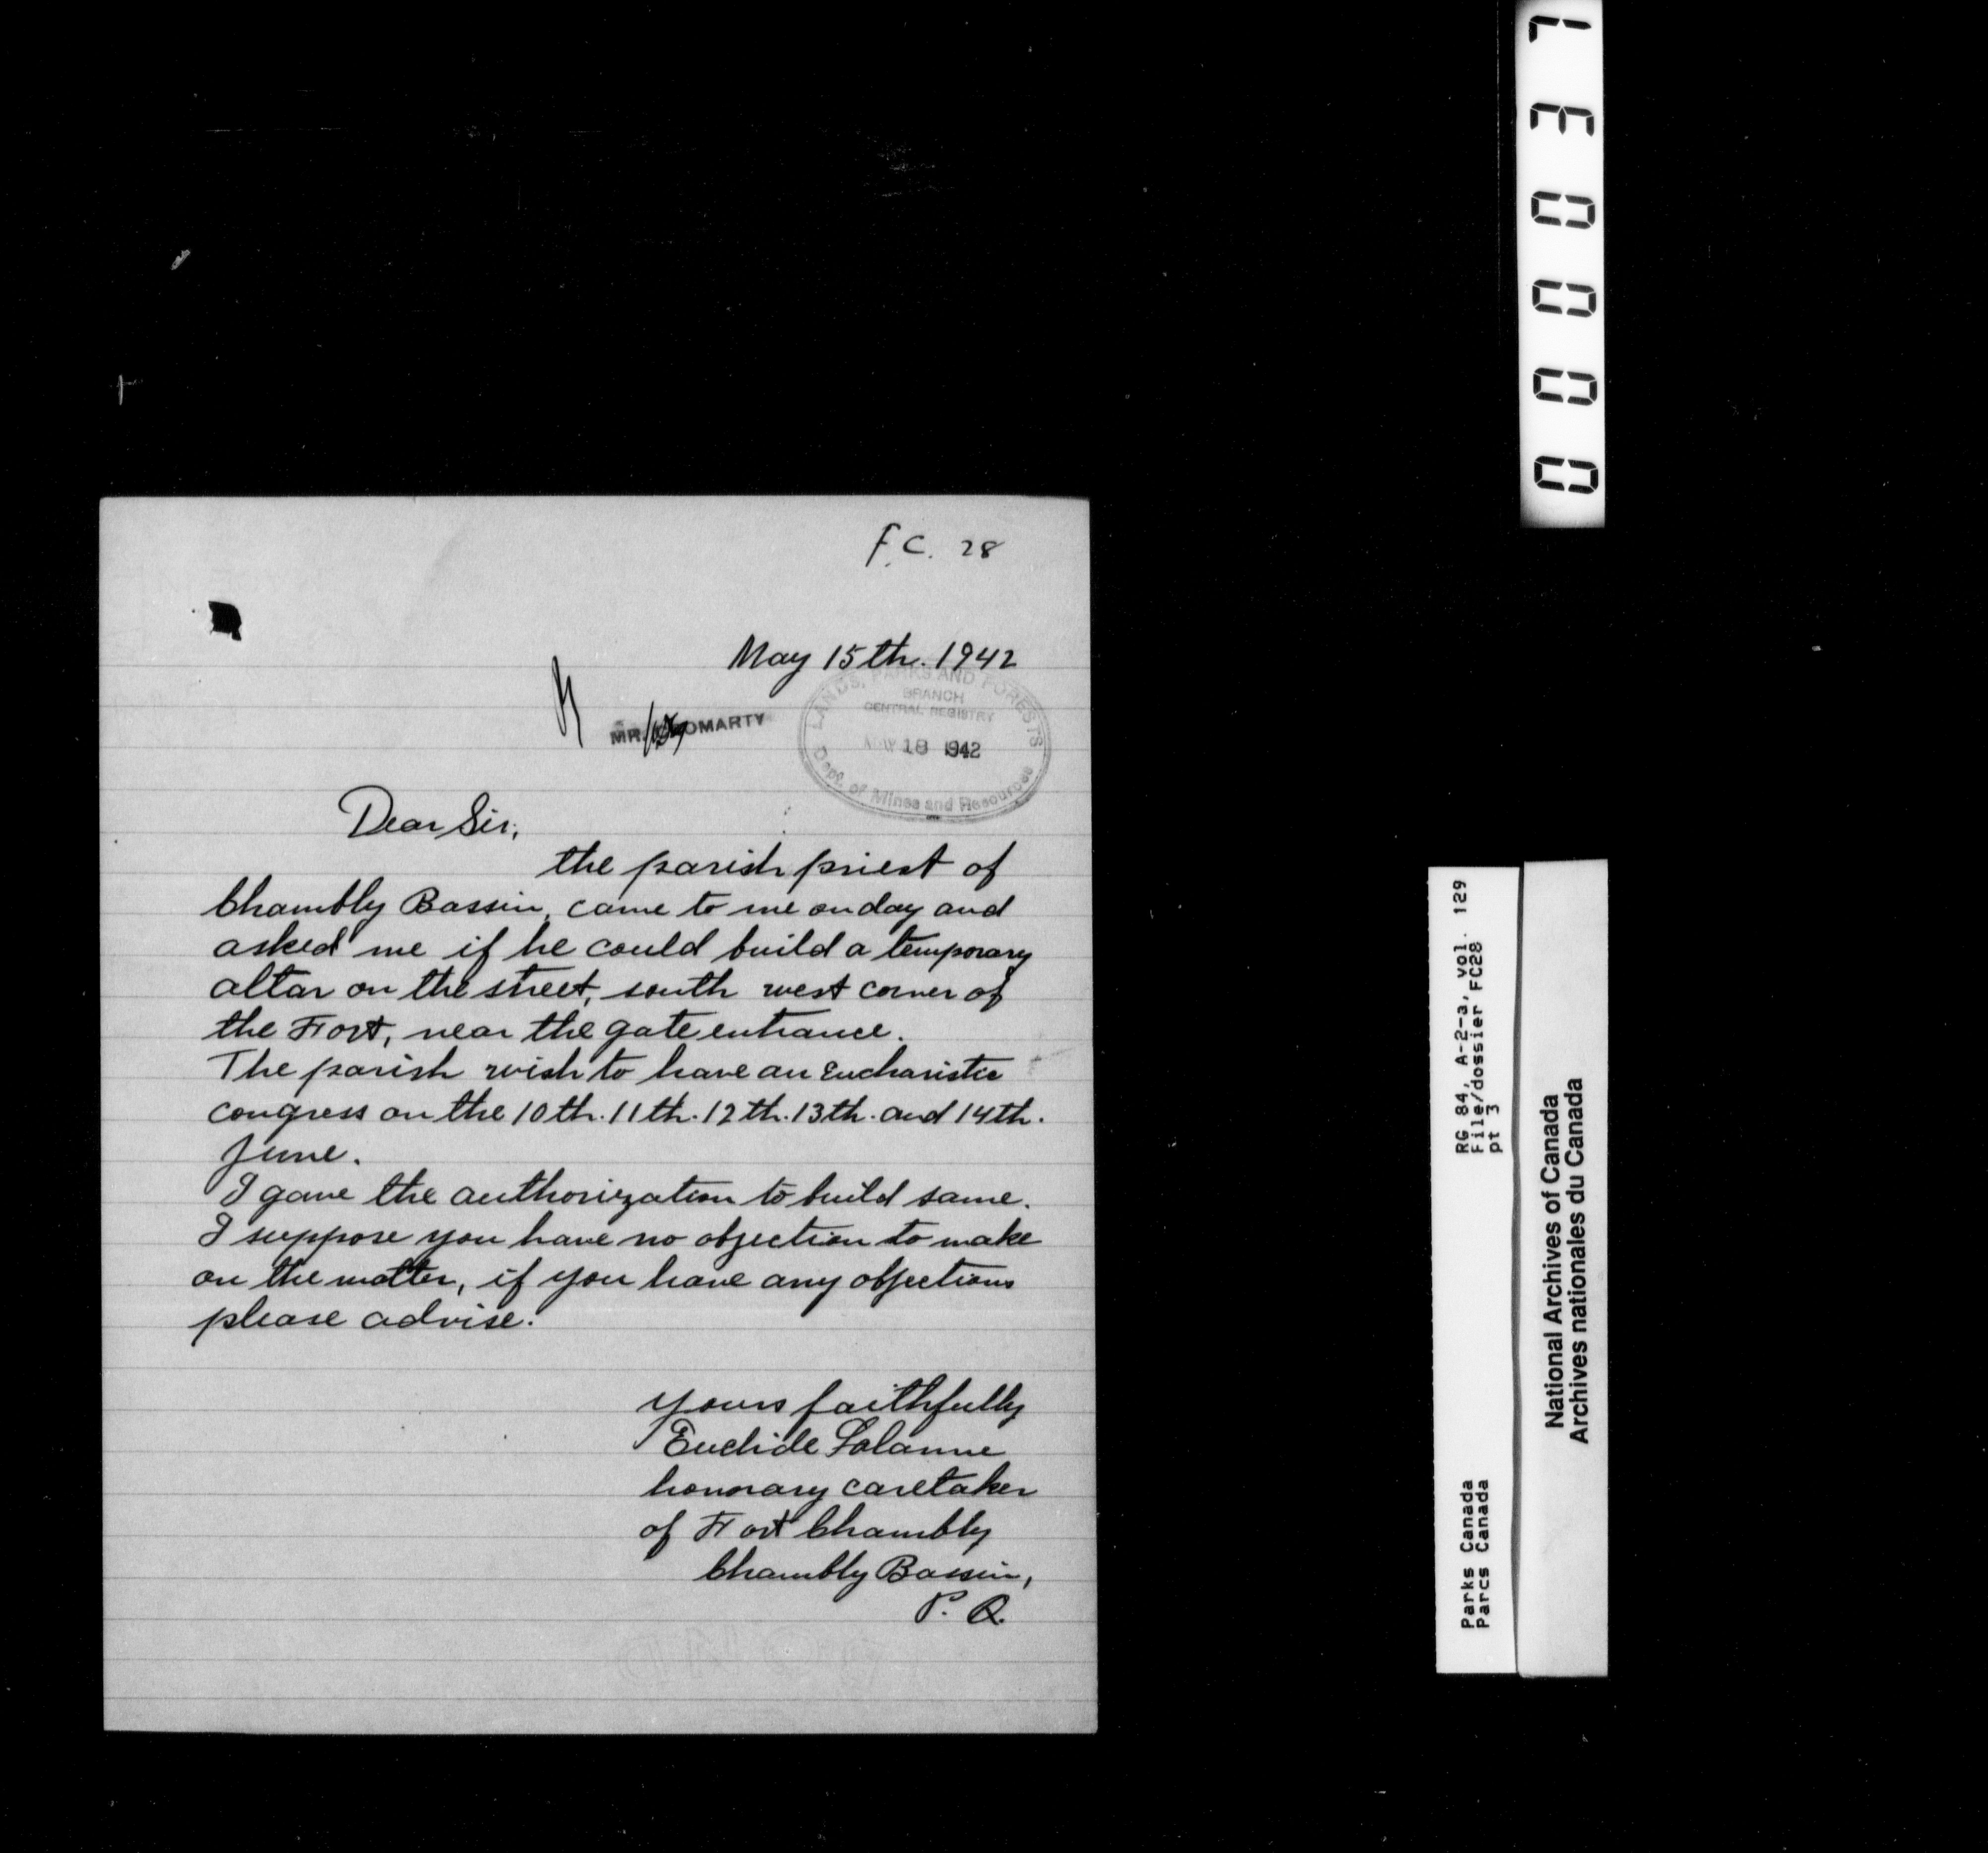 F.C. 28
May 15th. 1942
MR. OMARTY
LANDS, PARKS AND FORESTS
BRANCH
CENTRAL REGISTRY
MAY 18 1942
Dept. of Mines and Resources
Dear Sir,
the parish priest of
Chambly Bassin, came to me on day and
asked me if he could build a temporary
altar on the street, south west corner of
the Fort, near the gate entrance.
The parish wish to have an Eucharistic
congress on the 10th. 11th. 12th. 13th. and 14th.
June.
I gave the authorization to build same.
I suppose you have no objection to make
on the matter, if you have any objections
please advise.
yours faithfully
Euclide Lalanne
honorary caretaker
of Fort Chambly
Chambly Bassin,
P. Q.
000037
RG 84, A-2-a, vol. 129
File/dossier FC28
pt 3
Parks Canada
Parcs Canada
National Archives of Canada
Archives nationales du Canada